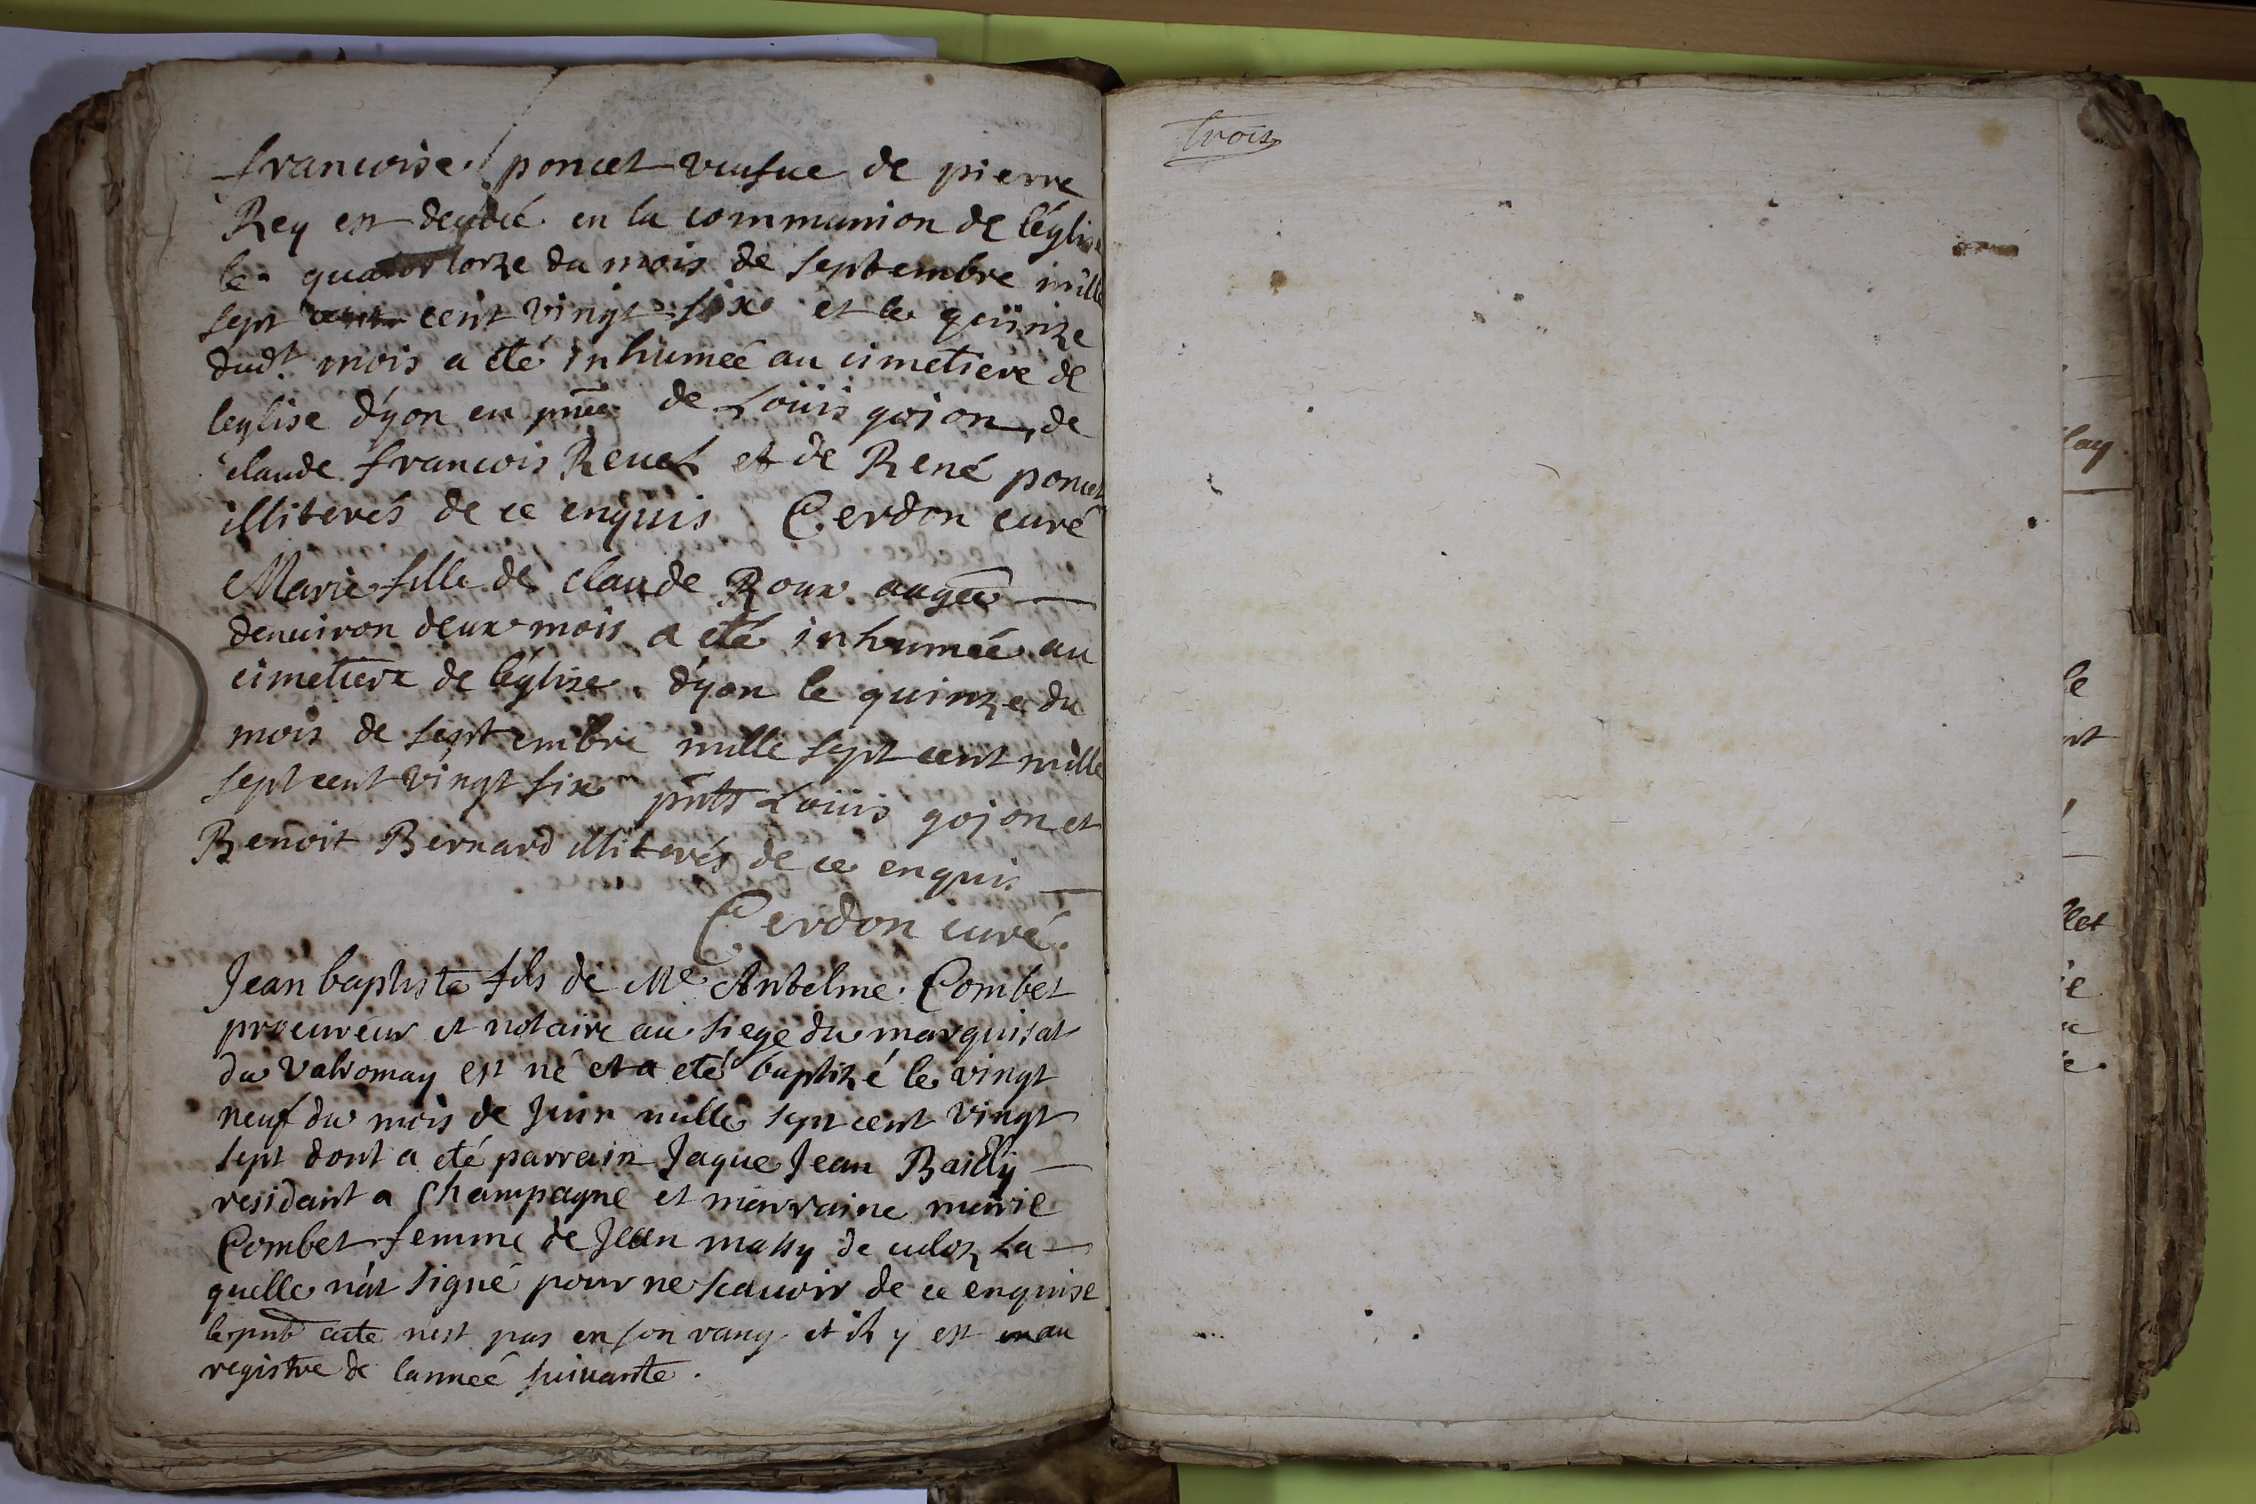 francoise poncet veufue de pierre
Rey est decedée en la communion de l'église
le quatorze du mois de septembre mille
sept cent vingt-six et le quinze
dudt mois a eté inhumeé au cimetiere de
leglise d'yon en pnce de Loüis gojon, de
claude francois Reuet et de René poncet
illiterés de ce enquis Cerdon curé
Marie fille de claude Roux aageé
denuiron deux mois a eté inhumeé au
cimetiere de l'église d'yon le quinze du
mois de septembre mille sept cent mille
sept cent vingt six pnts Loüis gojon et
Benoit Bernard illiterés de ce enquis
Cerdon curé
Jean baptiste fils de Me Antelme Combet
procureur et notaire au siege du marquisat
du Valromay est né et a eté baptizé le vingt
neuf du mois de Juin mille sept cent vingt
sept dont a eté parrain Jaque Jean Bailly
residant a Champagne et marraine marie
Combet femme de Jean massy de culoz La
quelle n'at signé pour ne scauoir de ce enquise
le pnt acte n'est pas en son rang et il y est au
registre de lanneé suiuante.
trois
lay
le
nt
llet
ie
a
ie